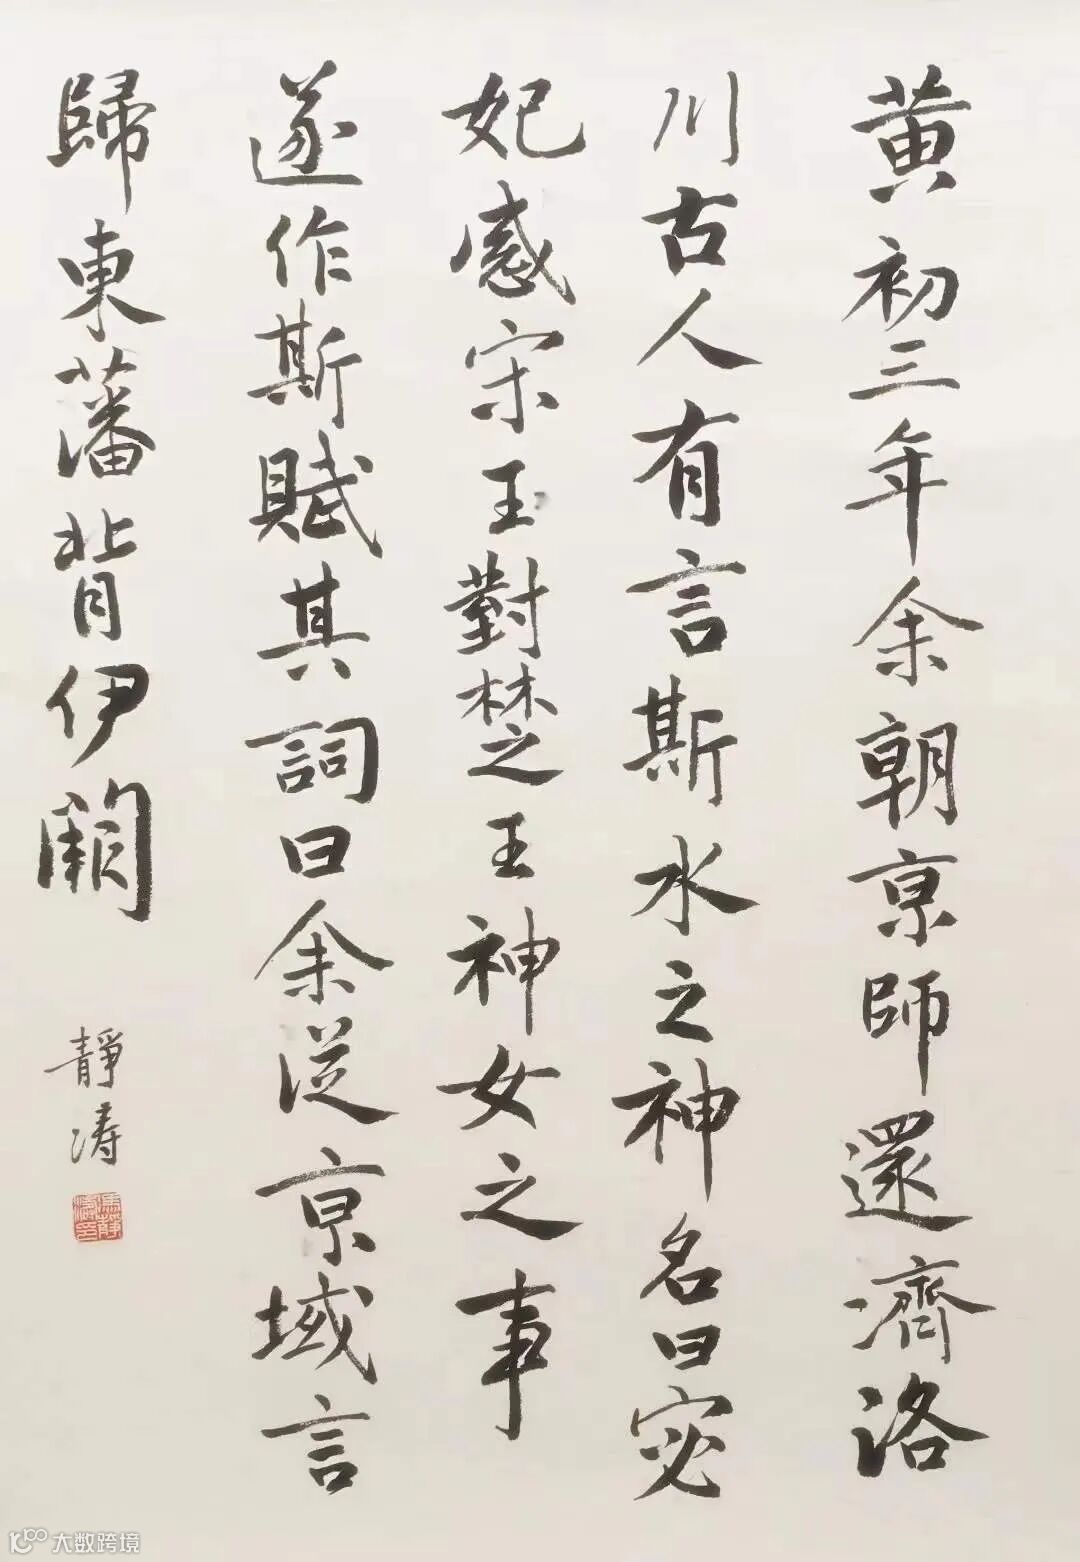 黄初三年余朝京師還濟洛
川古人有言斯水之神名曰宓
妃感宋玉對楚之王神女之事
遂作斯賦其詞曰余從京域言
歸東藩背伊闕
靜涛
大数跨境